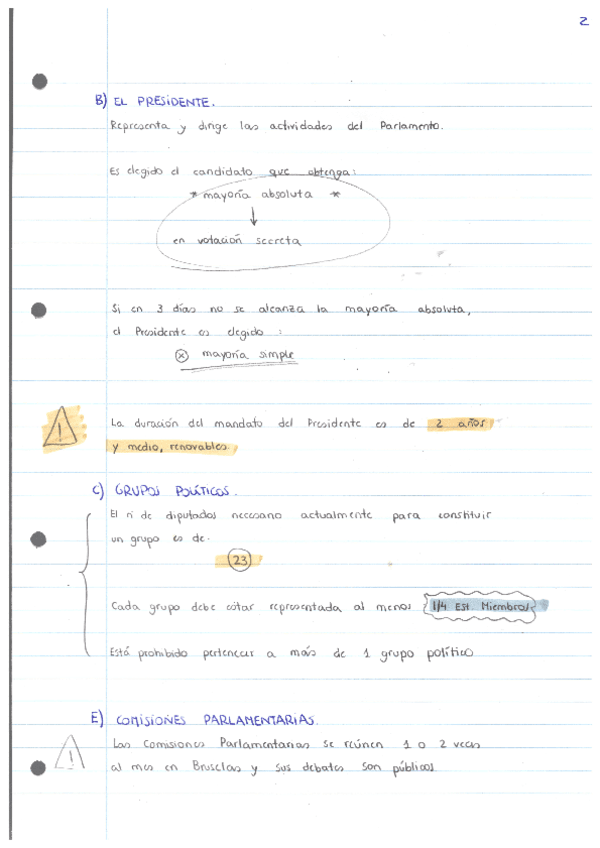 2
B) EL PRESIDENTE.
Representa y dirige las actividades del Parlamento.
Es elegido el candidato que obtenga:
* mayoría absoluta *
↓
en votación secreta
Si en 3 días no se alcanza la mayoría absoluta,
el Presidente es elegido :
x mayoría simple
!
La duración del mandato del Presidente es de 2 años
y medio, renovables.
C) GRUPOS POLÍTICOS.
El nº de diputados necesario actualmente para constituir
un grupo es de.
23
Cada grupo debe estar representada al menos 1/4 Est. Miembros
Está prohibido pertenecer a más de 1 grupo político
E) COMISIONES PARLAMENTARIAS.
!
Las Comisiones Parlamentarias se reúnen 1 o 2 veces
al mes en Bruselas y sus debates son públicos.